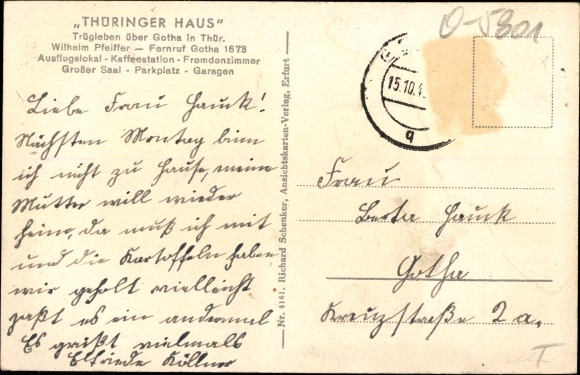 „THÜRINGER HAUS"
Trügleben über Gotha in Thür.
Wilhelm Pfeiffer — Fernruf Gotha 1673
Ausflugslokal - Kaffeestation - Fremdenzimmer
Großer Saal - Parkplatz - Garagen
Liebe Frau Hauck!
Nächsten Montag binn
ich nicht zu Hause, meine
Mutter will wieder
heim, da muß ich mit
und die Kartoffeln haben
wir geholt vielleicht
paßt es ein andermal
Es grüßt vielmals
Elfriede Köllner
Nr. 4161. Richard Schenker, Ansichtskarten-Verlag, Erfurt
O-5801
15.10.4
q
Frau
Berta Hauck
Gotha
Kreuzstraße 2a.
I